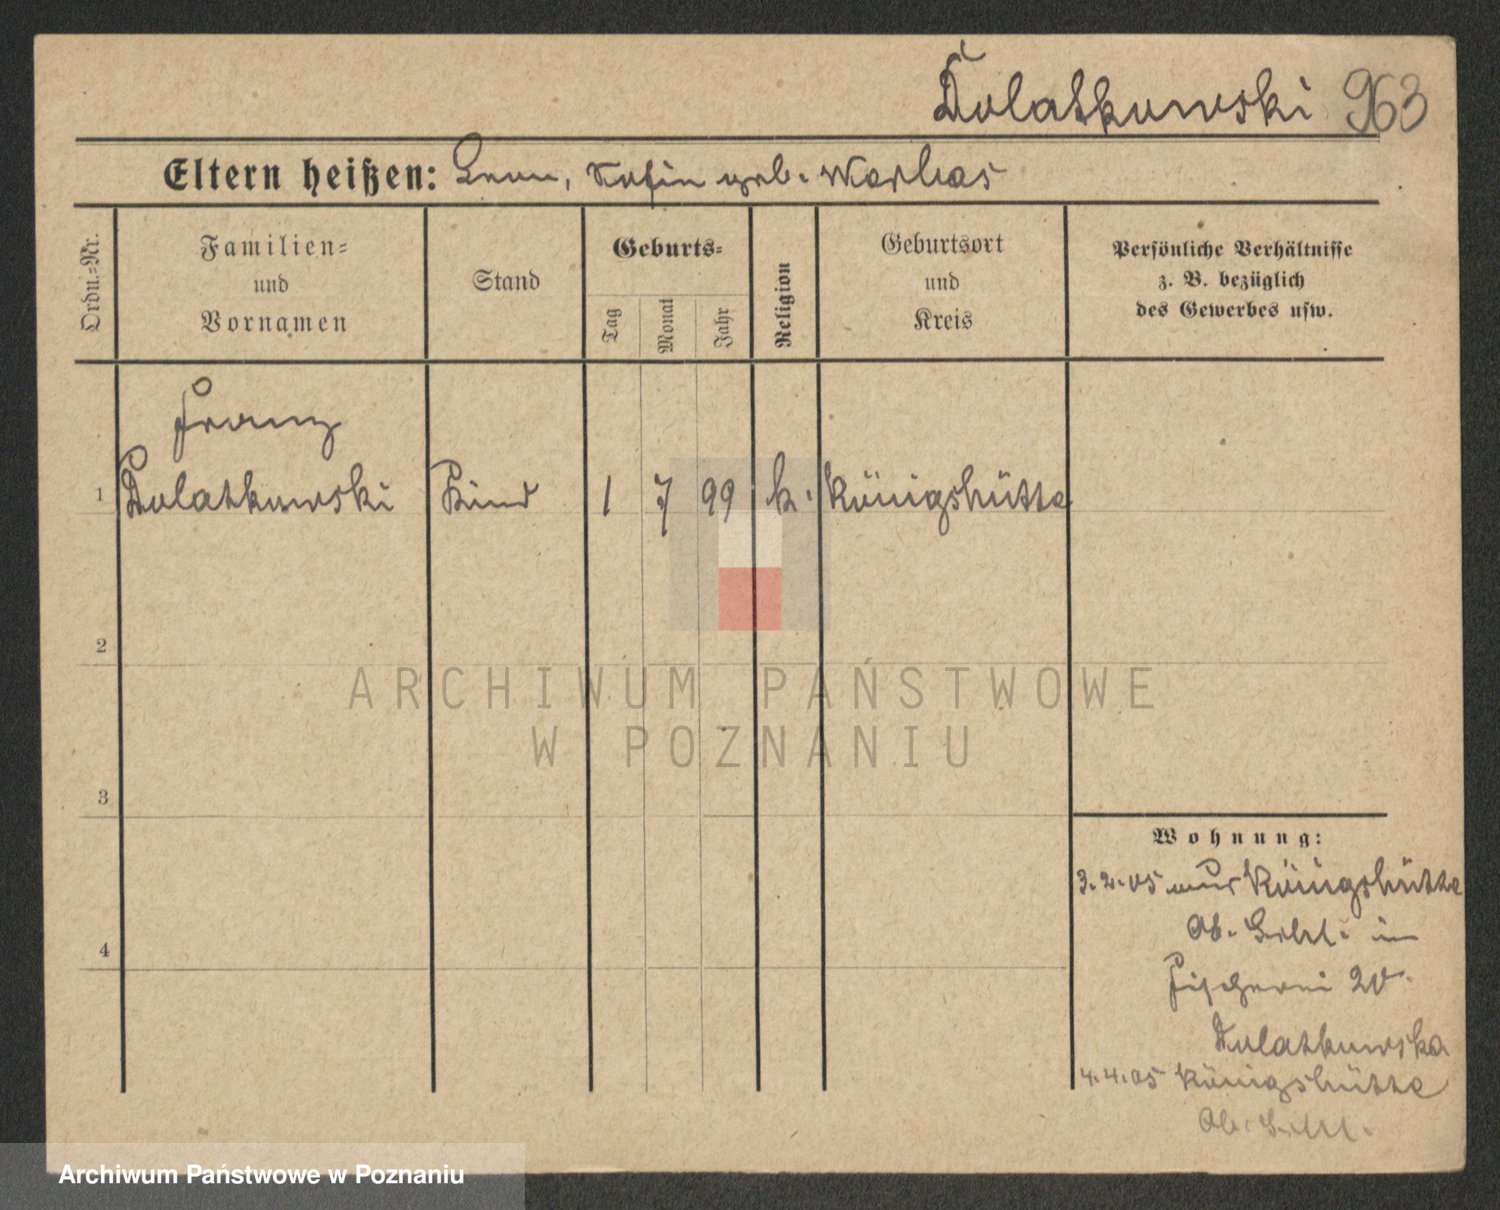 Dolatkowski 963
Eltern heißen: Leon, Sofie geb. Warhas
Ordn.=Nr.
Familien=
und
Vornamen
Stand
Geburts=
Tag
Monat
Jahr
Religion
Geburtsort
und
Kreis
Persönliche Verhältnisse
z. B. bezüglich
des Gewerbes usw.
Franz
1 Dolatkowski Kind 1 7 99 k. Königshütte
2
3
4
ARCHIWUM PAŃSTWOWE
W POZNANIU
Wohnung:
3.2.05 aus Königshütte
Ob. Schl. in
Fischerei 20
Dolatkowska
4.4.05 Königshütte
Ob. Schl.
Archiwum Państwowe w Poznaniu